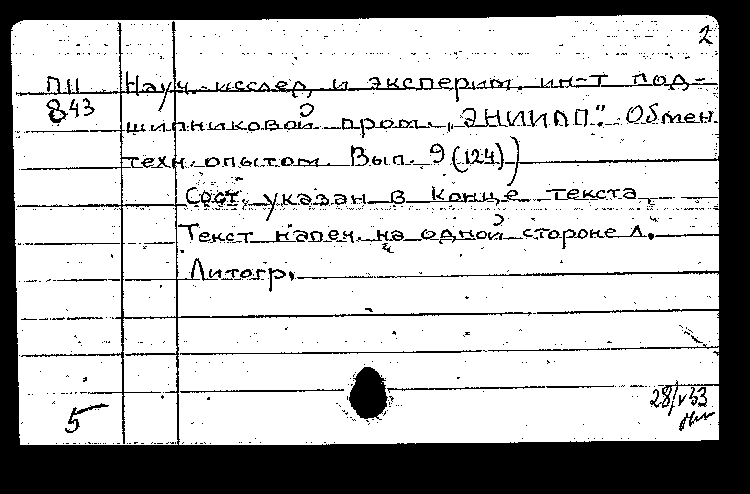 2
ПII Науч.-исслед. и эксперим. ин-т под-
843 шипниковой пром. „ЭНИИПП". Обмен
техн. опытом. Вып. 9 (124))
Сост. указан в конце текста.
Текст напеч. на одной стороне л.
Литогр.
5
28/V 53